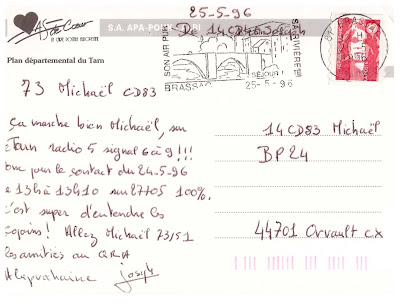 25-5-96
As de Cœur
S.A. APA-POUX
De 14CD46 Joseph
Plan départemental du Tarn
SON AIR PUR
RIVIÈRE
SÉJOUR
BRASSAC
25-5-96
73 Michaël CD83
14CD83 Michaël
BP24
44701 Orvault cx
Ça marche bien Michaël, sur
le Tarn radio 5 signal 6 à 9 !!!
pour le contact du 24-5-96
de 13h à 13h10 sur 27705 100%.
c'est super d'entendre les
copains ! Allez Michaël 73/51
les amitiés au QRA
A la prochaine Joseph